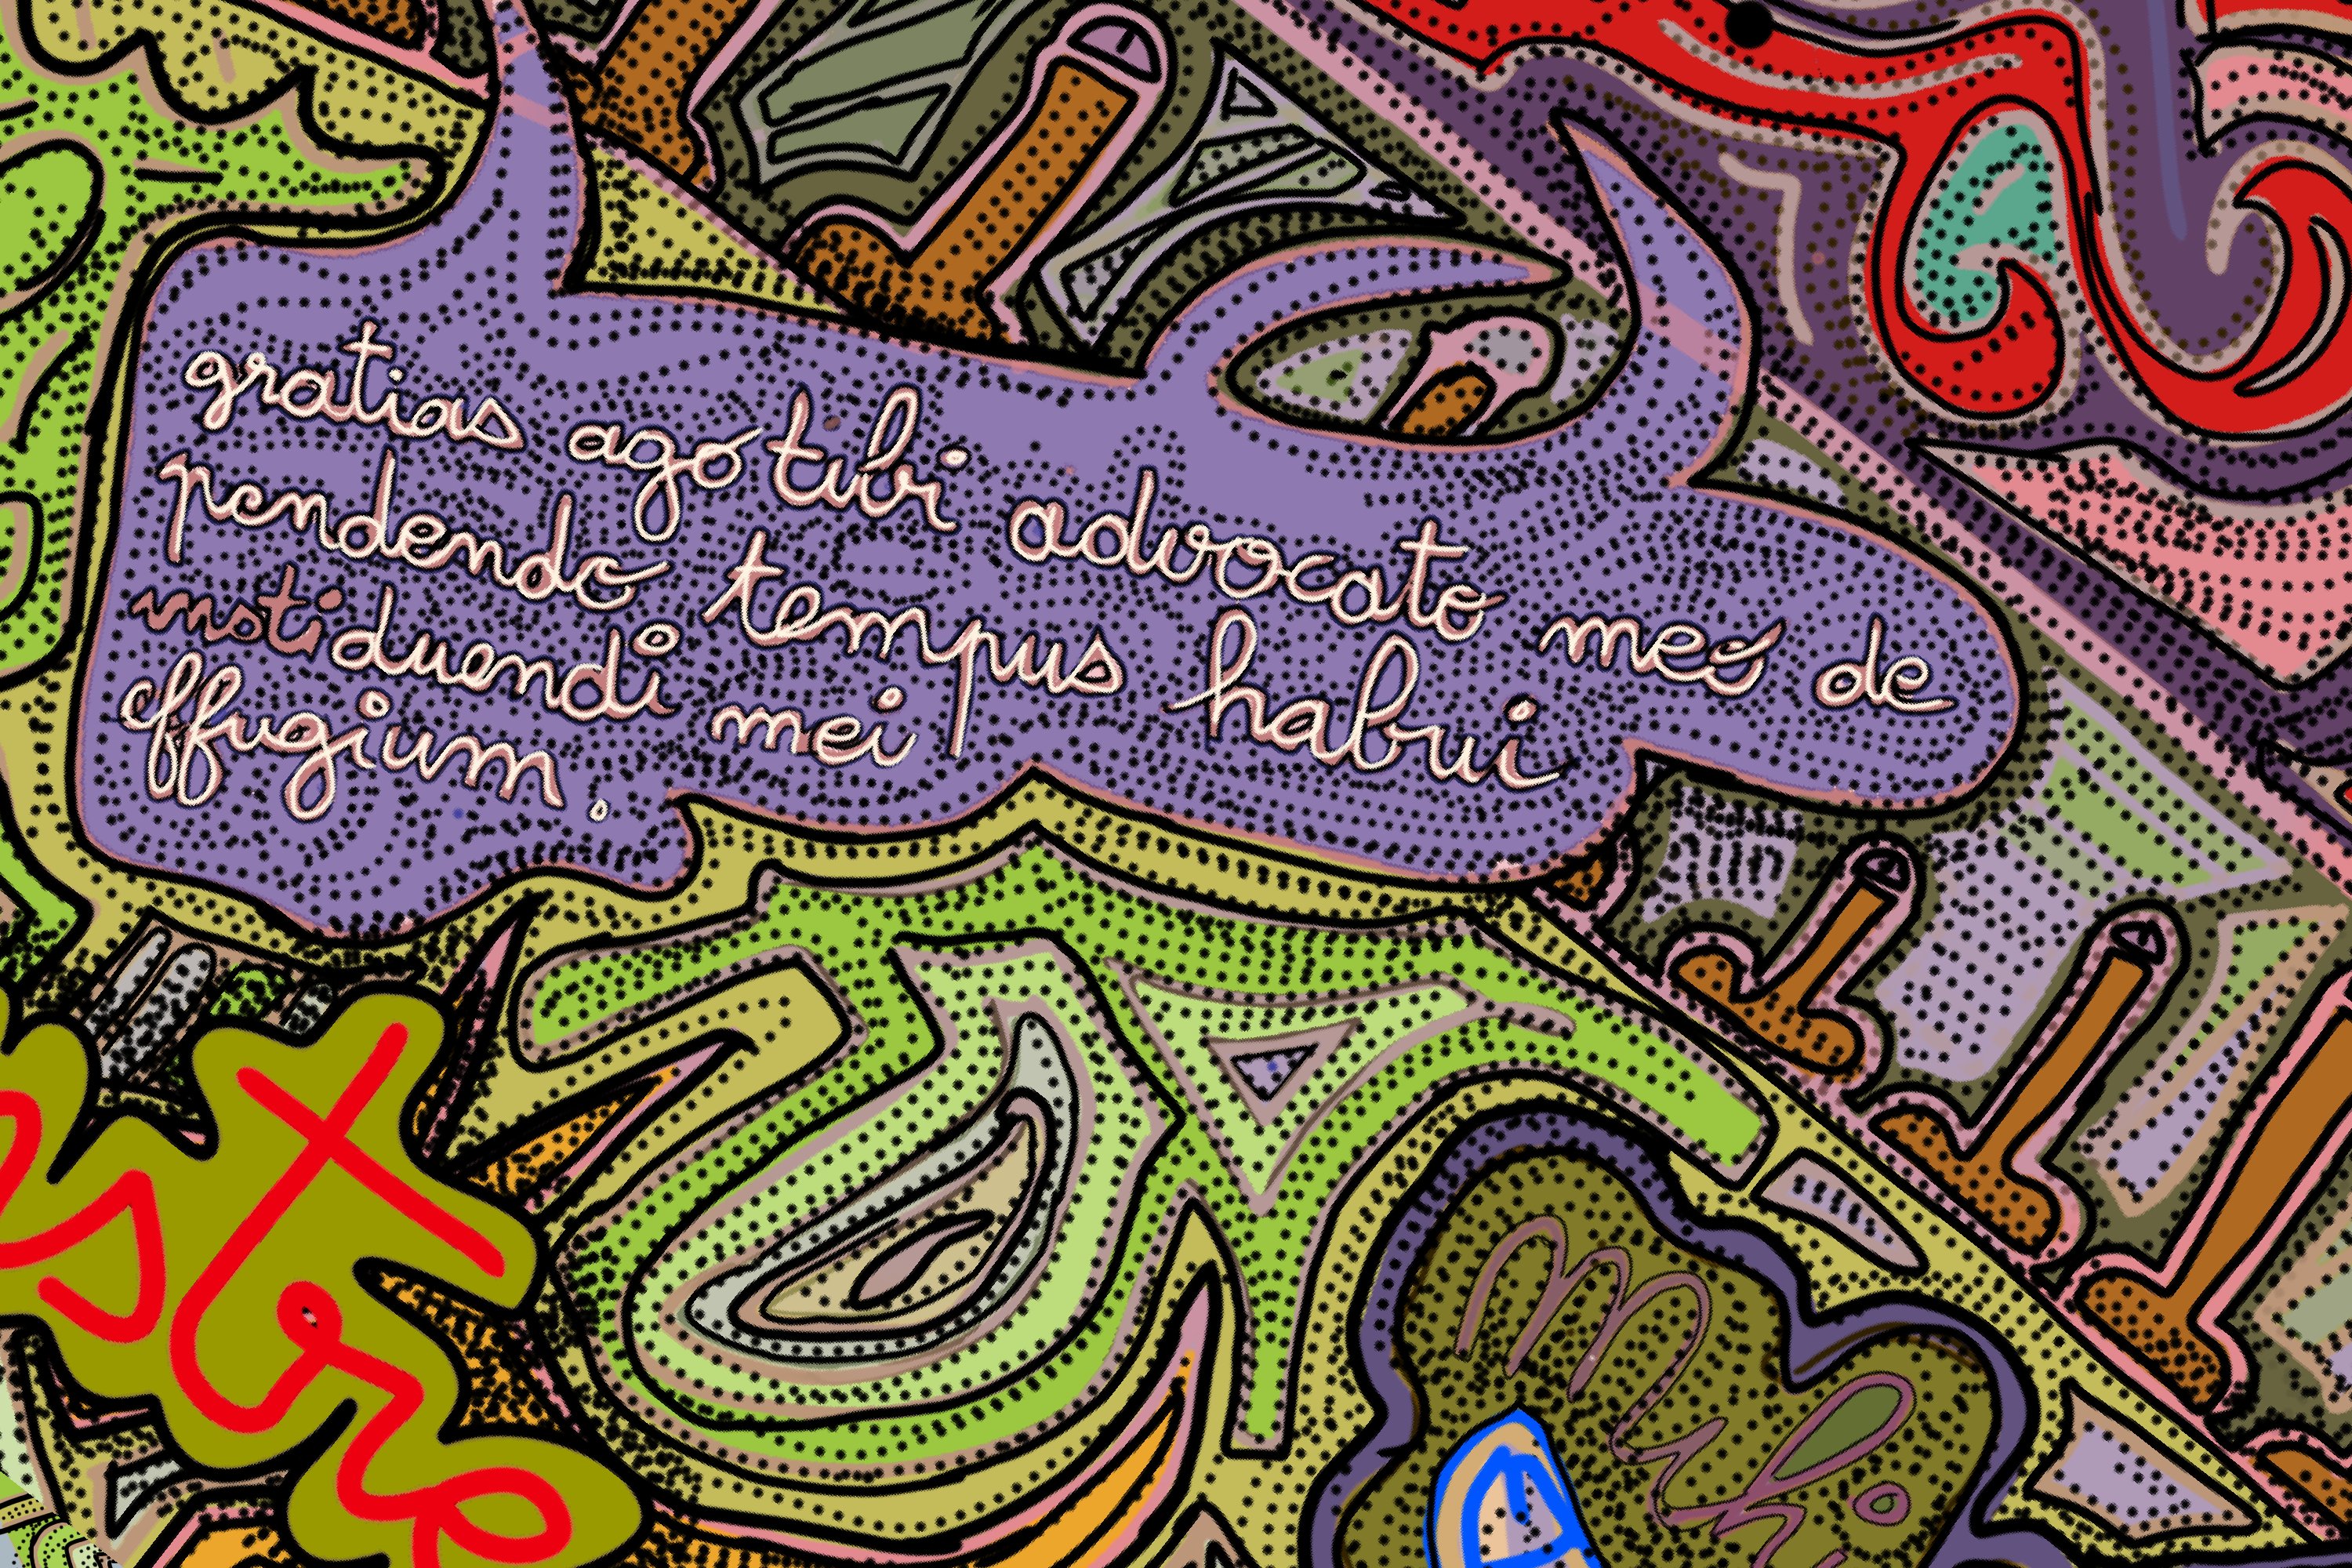 gratias ago tibi advocato meo de
pendendo tempus habui
instiduendi mei
effugium.
stre
mihi